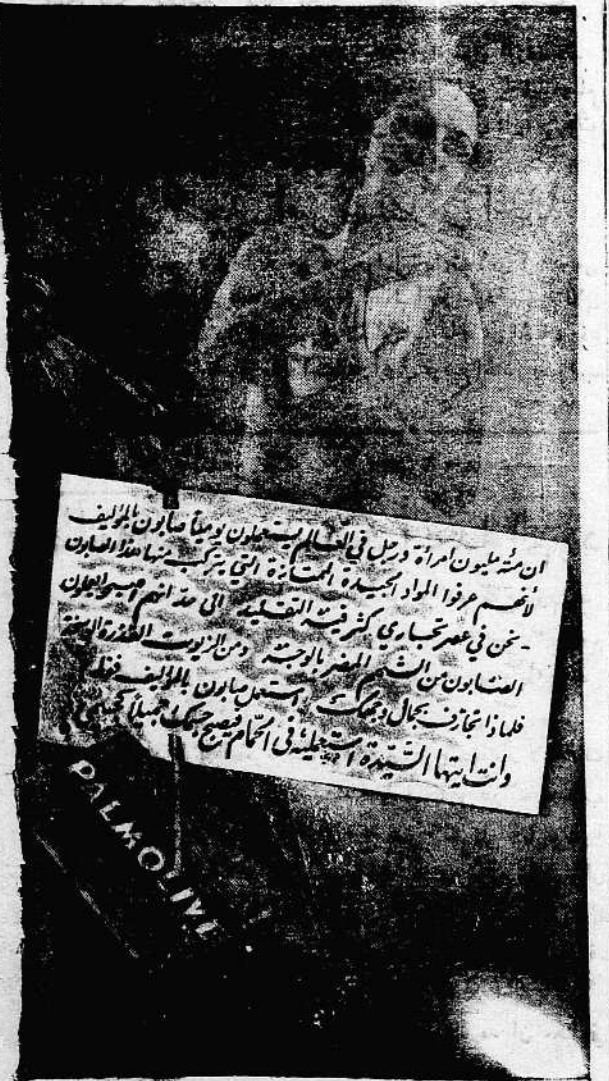 ان مئة مليون امرأة ورجل في العالم يستعملون يومياً صابون بالموليف
لأنهم عرفوا المواد الجيدة الممتازة التي يتركب منها هذا الصابون
- نحن في عصر تجاري كثر فيه التقليد الى حد انهم اصبحوا يعملون
الصابون من الشحم المضر بالوجه ومن الزيوت القذرة الوسخة
فلماذا تجازف بجمال وجهك استعمل صابون بالموليف فقط
وانت ايتها السيدة استعمليه في الحمام فيصبح جسمك جميلاً
PALMOLIVE